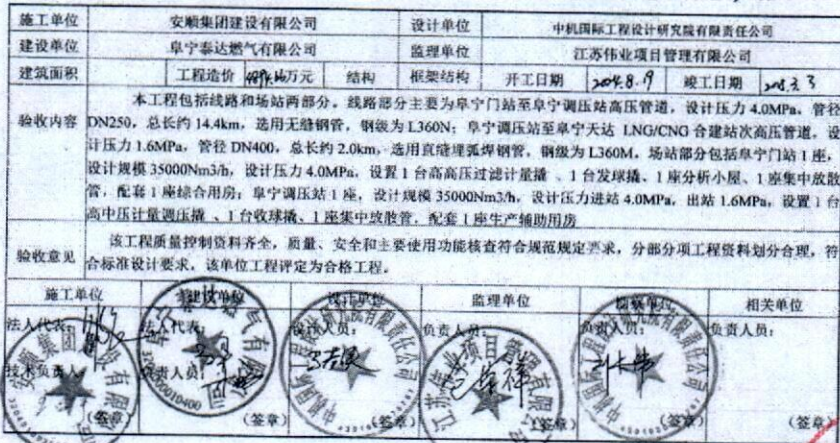 施工单位 安顺集团建设有限公司 设计单位 中机国际工程设计研究院有限责任公司
建设单位 阜宁泰达燃气有限公司 监理单位 江苏伟业项目管理有限公司
建筑面积 工程造价 万元 结构 框架结构 开工日期 竣工日期
验收内容
本工程包括线路和场站两部分。线路部分主要为阜宁门站至阜宁调压站高压管道，设计压力 4.0MPa，管径
DN250，总长约 14.4km，选用无缝钢管，钢级为 L360N；阜宁调压站至阜宁天达 LNG/CNG 合建站次高压管道，设
计压力 1.6MPa，管径 DN400，总长约 2.0km，选用直缝埋弧焊钢管，钢级为 L360M，场站部分包括阜宁门站 1 座，
设计规模 35000Nm3/h，设计压力 4.0MPa，设置 1 台高高压过滤计量撬 、1 台发球撬、1 座分析小屋、1 座集中放散
管，配套 1 座综合用房；阜宁调压站 1 座，设计规模 35000Nm3/h，设计压力进站 4.0MPa，出站 1.6MPa，设置 1 台
高中压计量调压撬 、1 台收球撬、1 座集中放散管，配套 1 座生产辅助用房
验收意见
该工程质量控制资料齐全，质量、安全和主要使用功能核查符合规范规定要求，分部分项工程资料划分合理，符
合标准设计要求，该单位工程评定为合格工程。
施工单位 建设单位 设计单位 监理单位 单位 相关单位
法人代表： 法人代表： 设计人员： 负责人员： 负责人员： 负责人员：
技术负责人 负责人员：
(签章) (签章) (签章) (签章) (签章) (签章)